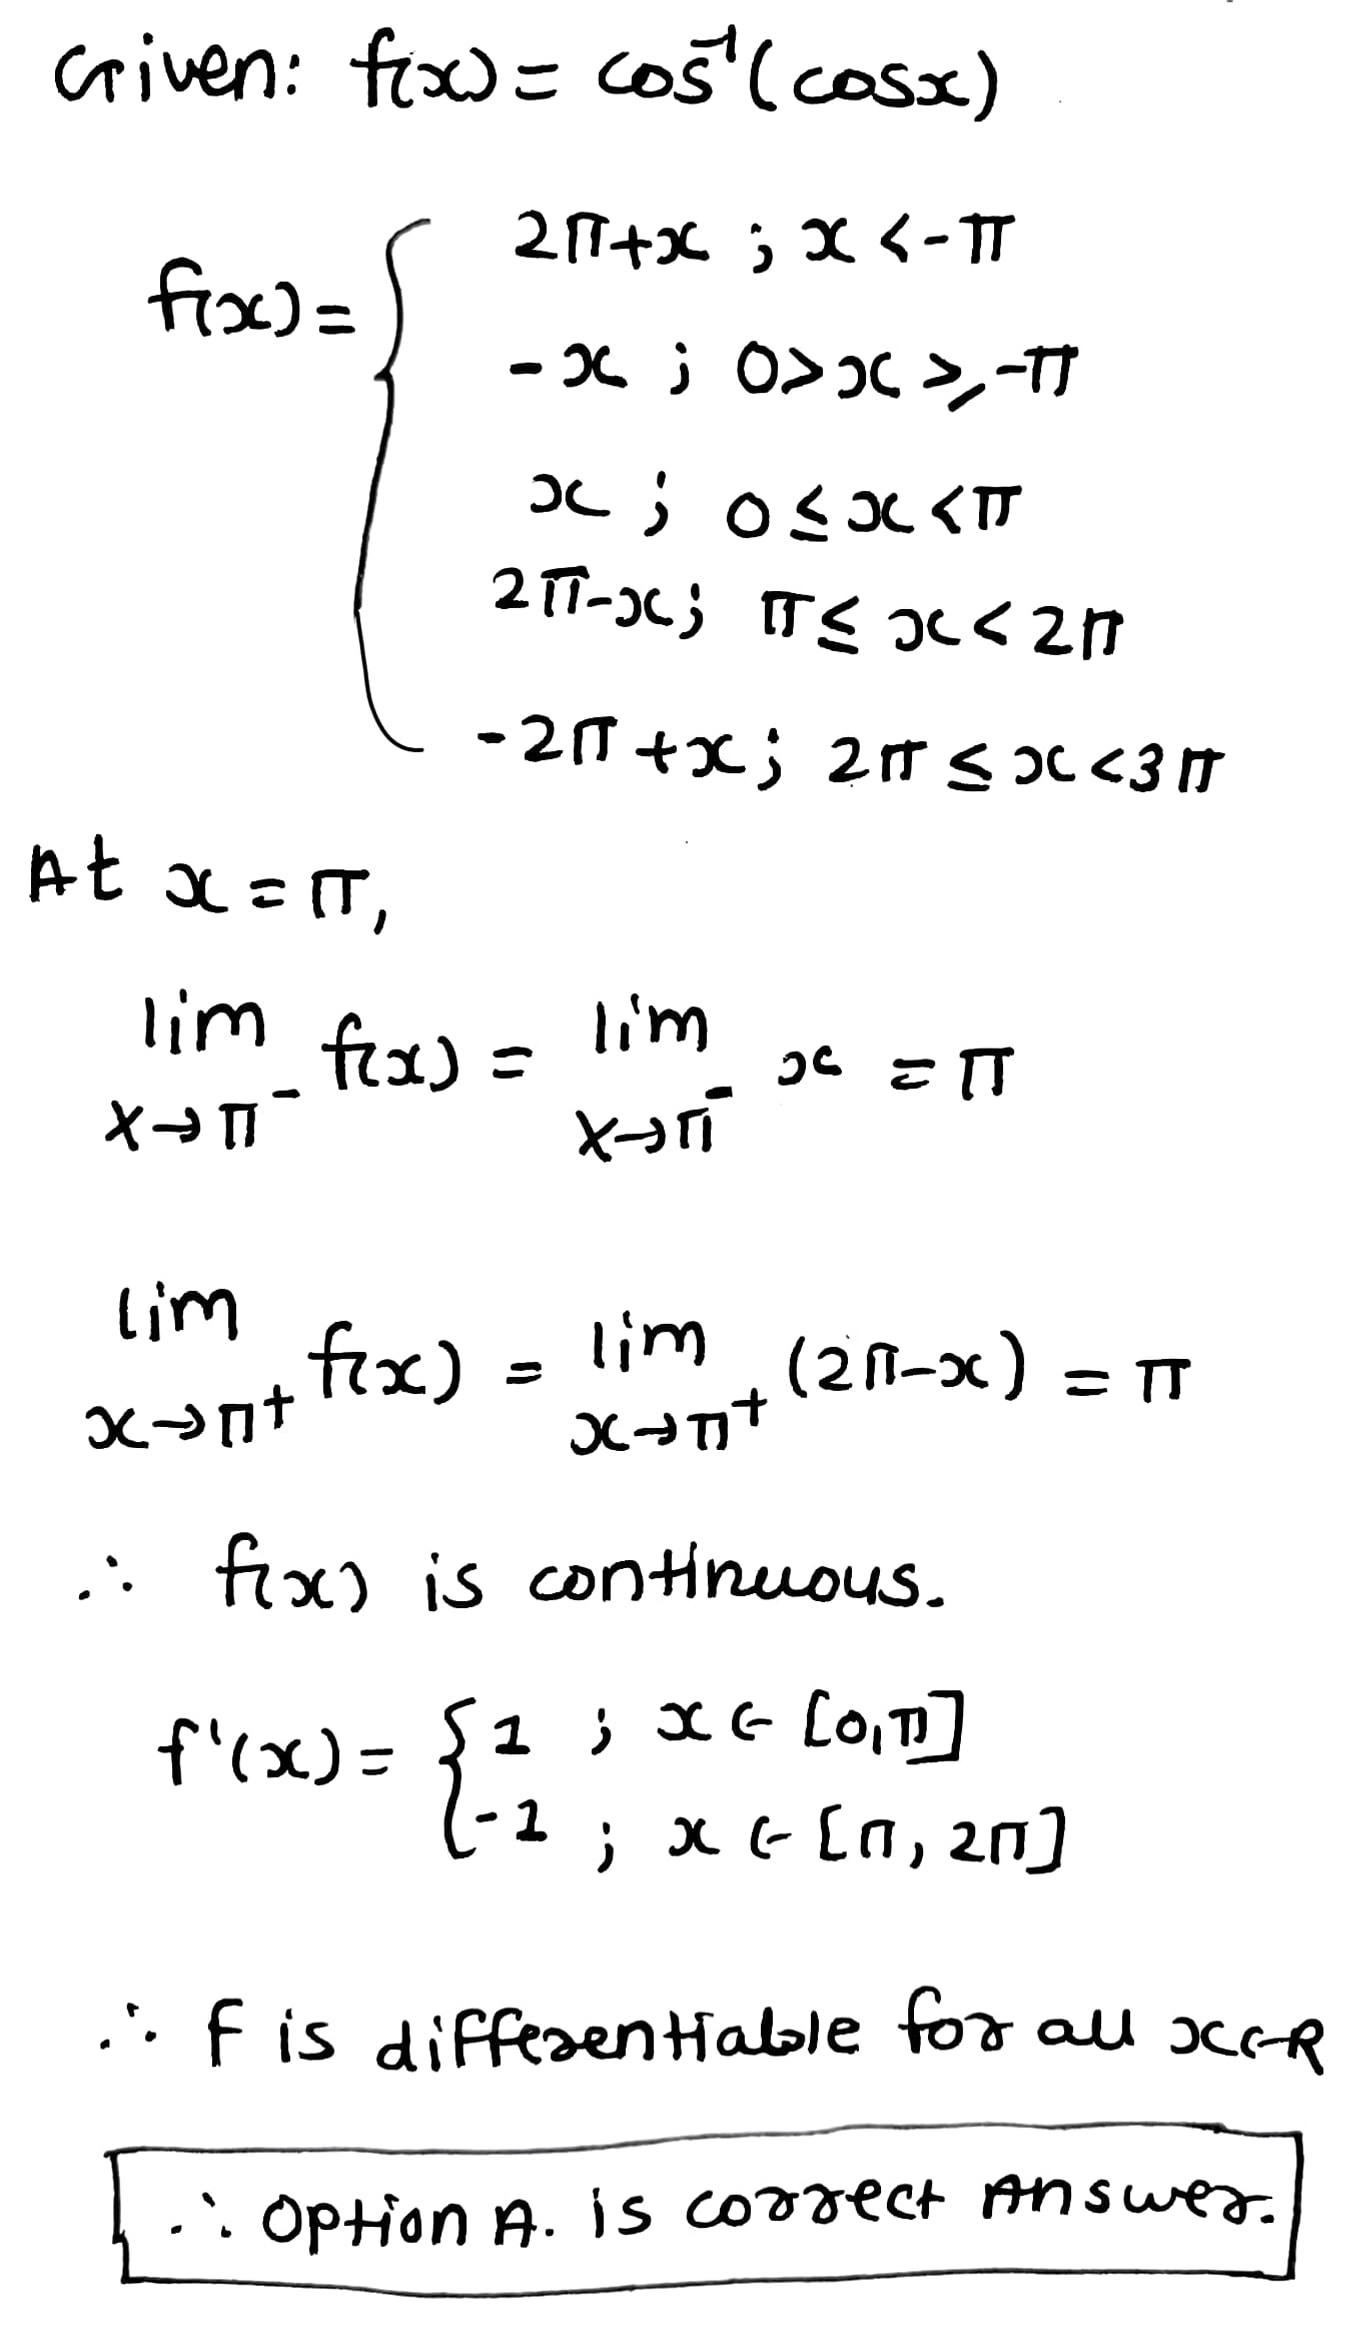 Given: f(x) = cos⁻¹(cosx)
2π+x ; x < -π
f(x) =
-x ; 0 > x ≥ -π
x ; 0 ≤ x < π
2π-x ; π ≤ x < 2π
-2π+x ; 2π ≤ x < 3π
At x = π,
lim x→π⁻ f(x) = lim x→π⁻ x = π
lim x→π⁺ f(x) = lim x→π⁺ (2π-x) = π
∴ f(x) is continuous.
f'(x) = { 1 ; x ∈ [0,π]
-1 ; x ∈ [π, 2π]
∴ F is differentiable for all x∈R
∴ Option A. is correct Answer.